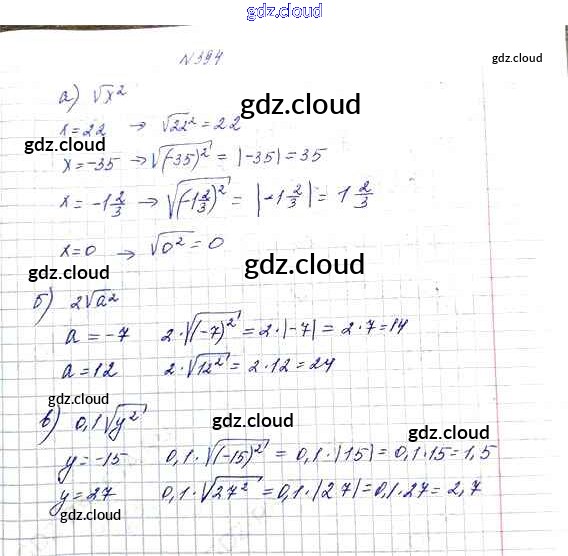 gdz.cloud
N 394
gdz.cloud
а) √x²
gdz.cloud
x=22 → √22² = 22
gdz.cloud
x=-35 → √(-35)² = |-35| = 35
x = -1 2/3 → √(-1 2/3)² = |-1 2/3| = 1 2/3
x=0 → √0² = 0
gdz.cloud
gdz.cloud
б) 2√a²
a = -7 2·√(-7)² = 2·|-7| = 2·7=14
a = 12 2·√12² = 2·12 = 24
gdz.cloud
в) 0,1√y²
gdz.cloud
gdz.cloud
y=-15 0,1·√(-15)² = 0,1·|15| = 0,1·15=1,5
y=27 0,1·√27² = 0,1·|27|=0,1·27= 2,7
gdz.cloud
gdz.cloud